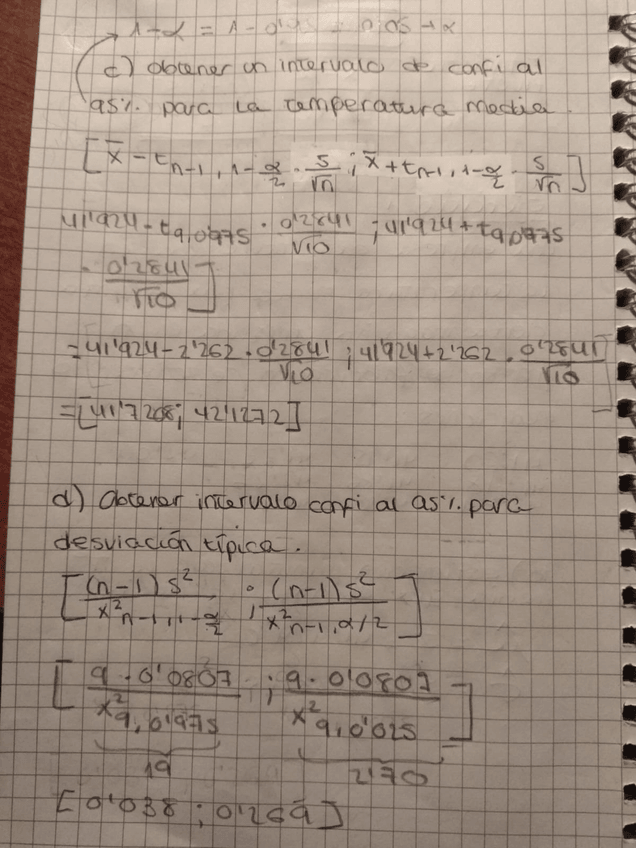 1-α = 1-0'95 = 0'05 → α
c) obtener un intervalo de confi al
95%. para la temperatura media.
[x̄ - t n-1, 1-α/2 · s/√n ; x̄ + t n-1, 1-α/2 · s/√n]
41'924 - t9,0'975 · 0'2841/√10 ; 41'924 + t9,0'975
· 0'2841/√10]
= 41'924 - 2'262 · 0'2841/√10 ; 41'924 + 2'262 · 0'2841/√10
= [41'7208; 42'1272]
d) Obtener intervalo confi al 95%. para
desviación típica.
[(n-1) s²/x² n-1, 1-α/2 ; (n-1) s²/x² n-1, α/2]
[9·0'0807/x² 9, 0'975 ; 9·0'0807/x² 9, 0'025]
19 2'70
[0'038 ; 0'269]